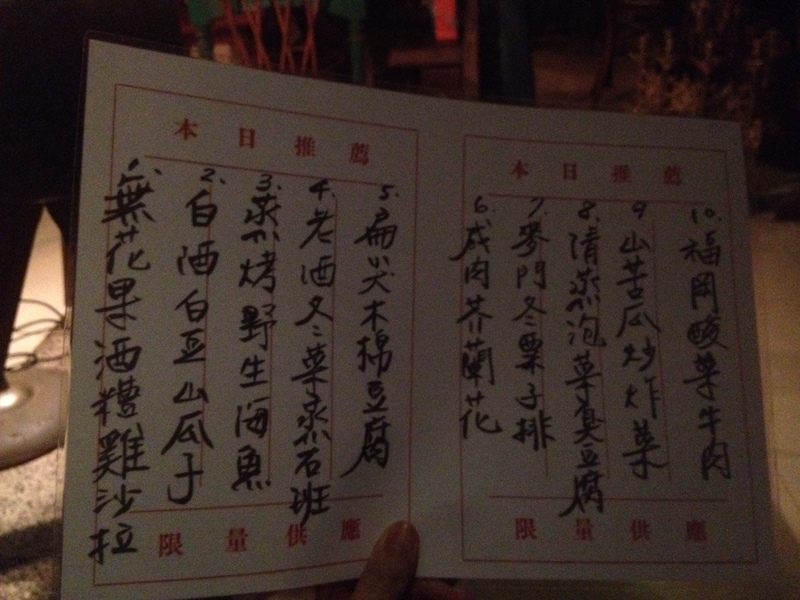 本日推薦
1.無花果酒糟雞沙拉
2.白酒白豆山瓜子
3.蒸烤野生海魚
4.老酒冬菜蒸石斑
5.扁尖木棉豆腐
限量供應
本日推薦
6.咸肉芥蘭花
7.麥門冬栗子排
8.清蒸泡菜臭豆腐
9山苦瓜炒炸菜
10.福岡酸菜牛肉
限量供應